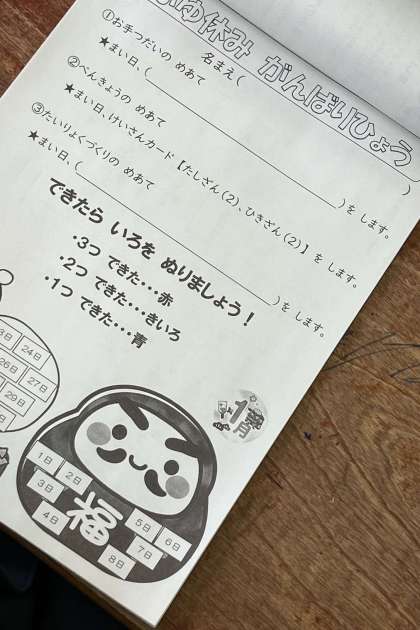 ふゆ休み がんばりひょう
名まえ( )
①お手つだいの めあて
★まい日、( )を します。
②べんきょうの めあて
★まい日、けいさんカード【たしざん(2)、ひきざん(2)】を します。
③たいりょくづくりの めあて
★まい日、( )を します。
できたら いろを ぬりましょう!
・3つ できた・・・赤
・2つ できた・・・きいろ
・1つ できた・・・青
24日
26日 27日
29日
1月
1日 2日
3日
4日
福
5日 6日
7日
8日